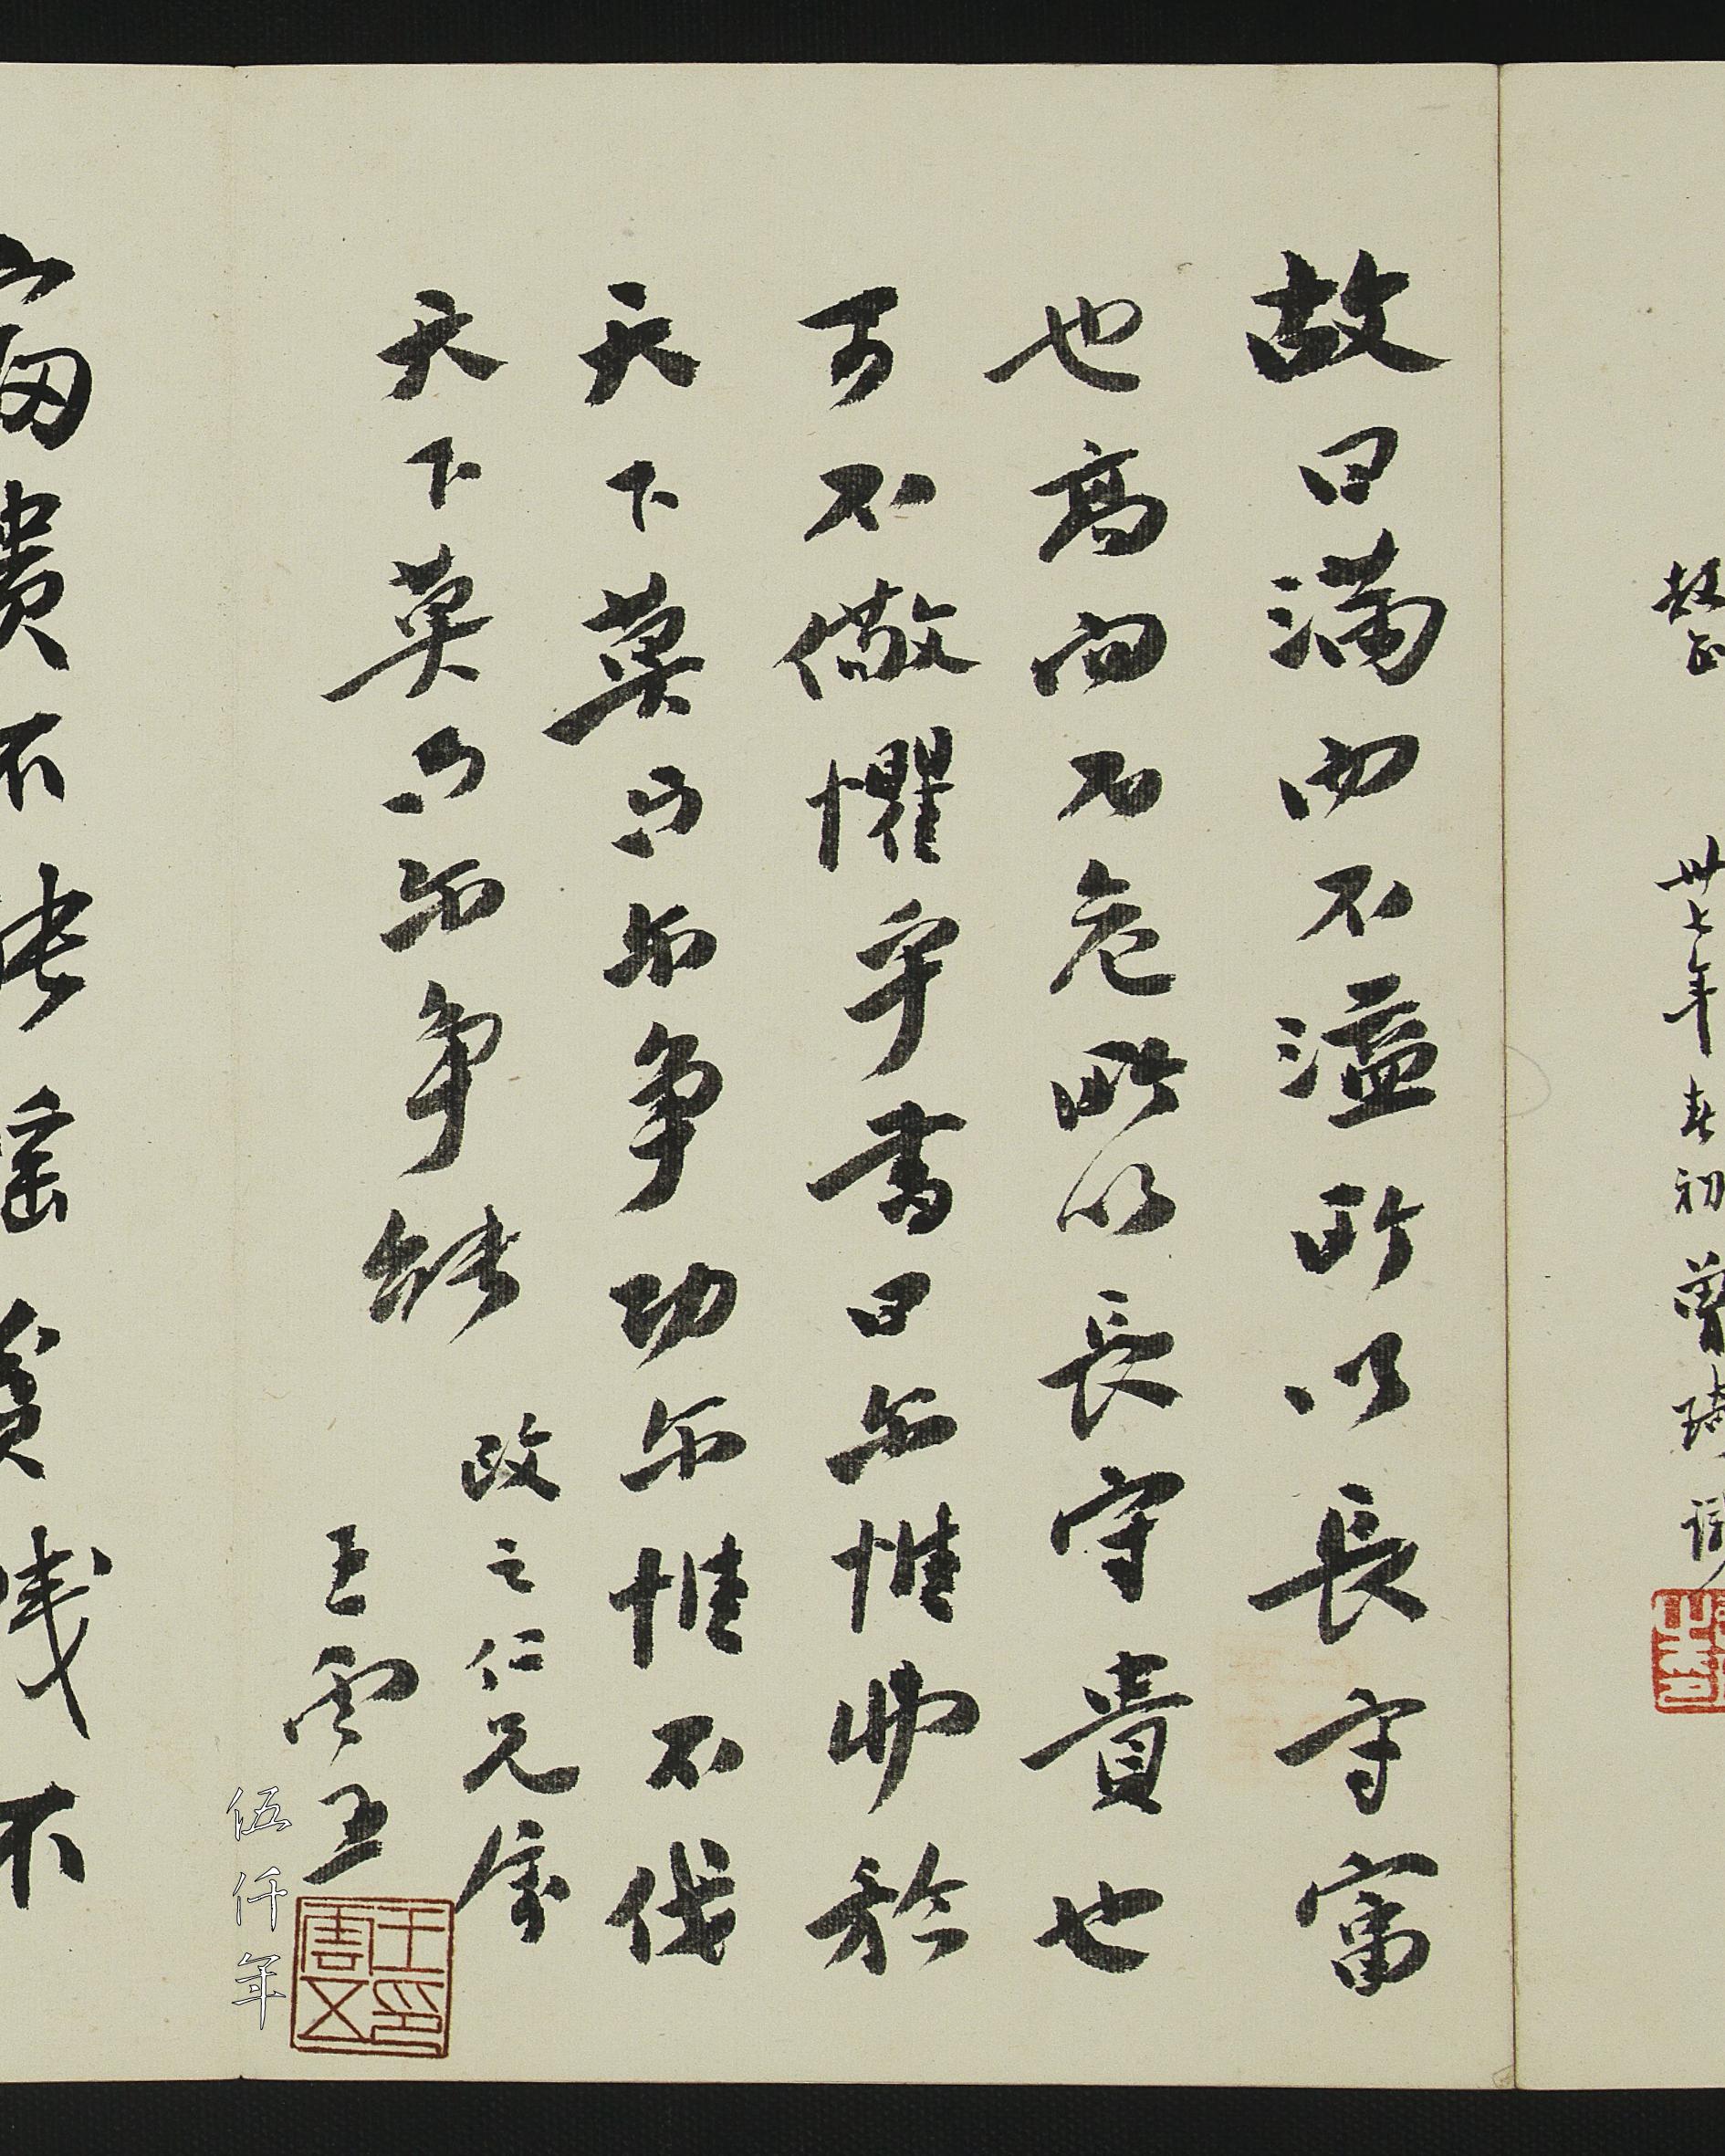 教正
卅七年春初曾琦識
故曰滿而不溢所以長守富
也高而不危所以長守貴也
可不儆懼乎書曰尔惟弗矜
天下莫与尔争功尔惟不伐
天下莫与尔争能
政之仁兄屬
王雲五
王印雲五
伍仟年
富貴不能淫貧賤不